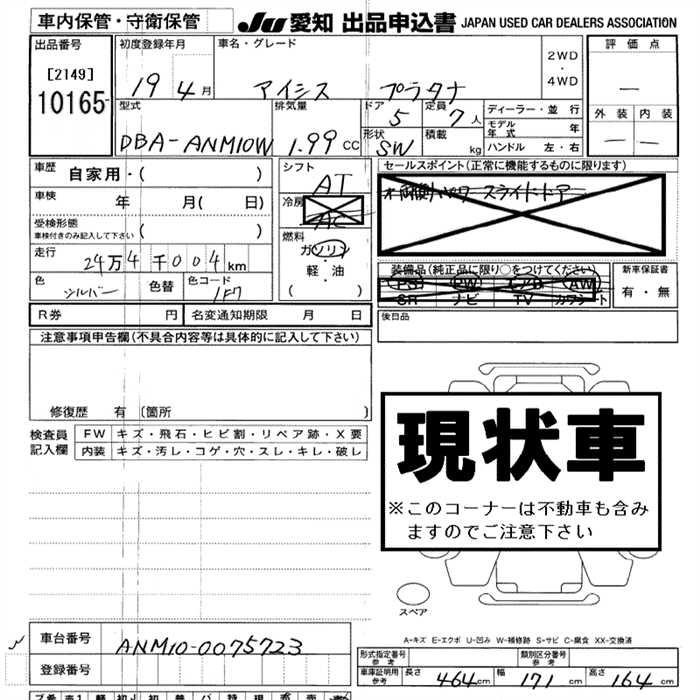 車内保管・守衛保管 JU 愛知 出品申込書 JAPAN USED CAR DEALERS ASSOCIATION
出品番号 初度登録年月 車名・グレード 評価点
[2149] 2WD・4WD
10165 19 4月 アイシス プラタナ —
型式 排気量 ドア 定員 ディーラー・並行 外装 内装
5 7人 モデル年式 年
DBA-ANM10W 1.99cc 形状 SW 積載 kg ハンドル 左・右 — —
車歴 自家用・( ) シフト AT セールスポイント(正常に機能するものに限ります)
車検 年 月( 日) 冷房 AC 両側パワースライドドア
受検形態 ( )
車検付きのみ記入して下さい
燃料 ガソリン・軽・油 ( )
走行 24万4千004km 装備品(純正品に限り○をつけてください) 新車保証書
色 シルバー 色替 色コード 1F7 PS PW AW 有・無
SR ナビ TV カワシート
後日品
R券 円 名変通知期限 月 日
注意事項申告欄(不具合内容等は具体的に記入して下さい)
修復歴 有 [箇所 ]
現状車
※このコーナーは不動車も含みますのでご注意下さい
検査員記入欄 FW キズ・飛石・ヒビ割・リペア跡・X要
内装 キズ・汚レ・コゲ・穴・スレ・キレ・破レ
スペア
A-キズ E-エクボ U-凹み W-補修跡 S-サビ C-腐食 XX-交換済
車台番号 ANM10-0075723
登録番号
形式指定番号 参考 類別区分番号 参考
車庫証明用 参考 長さ 464cm 幅 171cm 高さ 164cm